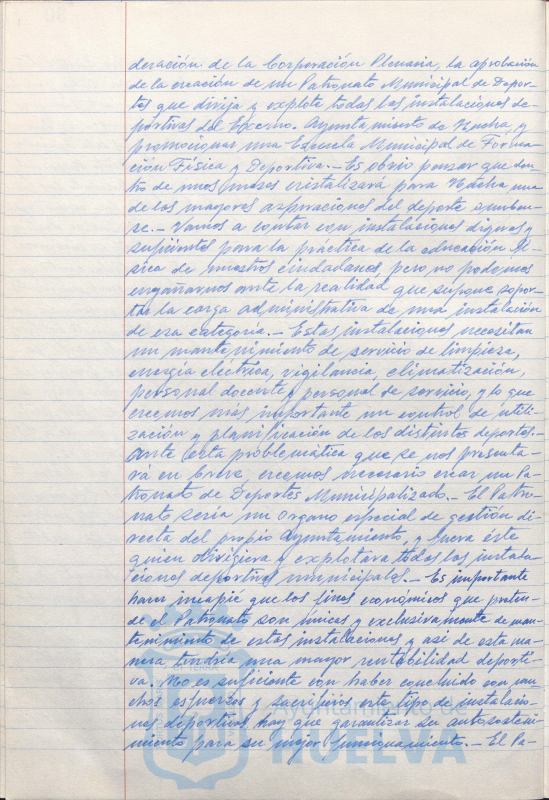 deración de la Corporación Plenaria, la aprobación
de la creación de un Patronato Municipal de Depor-
tes que dirija y explote todas las instalaciones de-
portivas del Excmo. Ayuntamiento de Huelva, y
promocionar una Escuela Municipal de Forma-
ción Física y Deportiva.- Es obvio pensar que den-
tro de unos meses cristalizará para Huelva una
de las mayores aspiraciones del deporte onuben-
se.- Vamos a contar con instalaciones dignas y
suficientes para la práctica de la educación fí-
sica de nuestros ciudadanos, pero no podemos
engañarnos ante la realidad que supone sopor-
tar la carga administrativa de una instalación
de esa categoría.- Estas instalaciones necesitan
un mantenimiento de servicio de limpieza,
energía eléctrica, vigilancia, climatización,
personal docente y personal de servicio, y lo que
creemos más importante un control de utili-
zación y planificación de los distintos deportes.-
Ante esta problemática que se nos presenta-
rá en breve, creemos necesario crear un Pa-
tronato de Deportes Municipalizado.- El Patro-
nato sería un organo especial de gestión di-
recta del propio Ayuntamiento, y fuera éste
quien dirigiera y explotara todas las instala-
ciones deportivas municipales.- Es importante
hacer incapié que los fines económicos que preten-
de el Patronato son únicas y exclusivamente de man-
tenimiento de estas instalaciones y así de esta ma-
nera tendría una mayor rentabilidad deporti-
va. No es suficiente con haber concluido con mu-
chos esfuerzos y sacrificios este tipo de instalacio-
nes deportivas hay que garantizar su autososteni-
miento para su mejor funcionamiento.- El Pa-
Ayuntamiento de
HUELVA